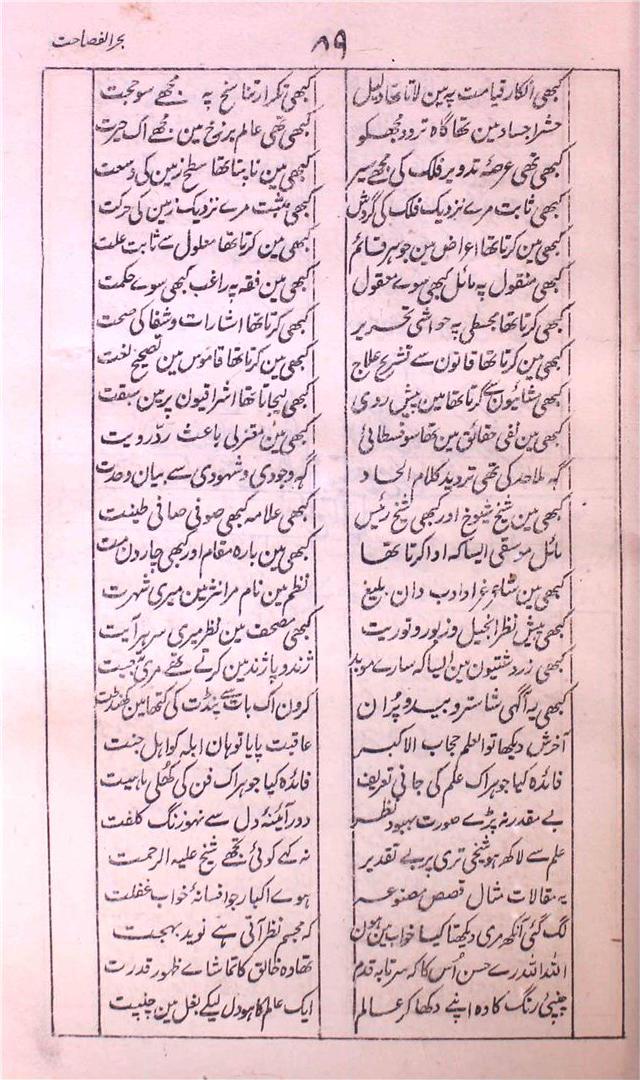 بحر الفصاحت
۸۹
کبھی انکار قیامت پہ مین لاتا تھا دلیل کبھی تکرار تناسخ پہ مجھے سو حجت
حشر اجساد مین تھا گاہ تردد مجھکو کبھی تھی عالم برزخ مین مجھے اک حیرت
کبھی تھی عرصۂ تدویر فلک کی مجھے سیر کبھی مین ناپتا تھا سطح زمین کی وسعت
کبھی ثابت مرے نزدیک فلک کی گردش کبھی مثبت مرے نزدیک زمین کی حرکت
کبھی مین کرتا تھا اعراض مین جوہر قائم کبھی مین کرتا تھا معلول سے ثابت علت
کبھی منقول پہ مائل کبھی سوے معقول کبھی مین فقہ پہ راغب کبھی سوے حکمت
کبھی کرتا تھا مجسطی پہ حواشی تحریر کبھی کرتا تھا اشارات و شفا کی صحت
کبھی مین کرتا تھا قانون سے تشریح علاج کبھی مین کرتا تھا قاموس مین تصحیح لغت
کبھی مشائیون سے کرتا تھا مین پیش روی کبھی لیجاتا تھا اشراقیون پر مین سبقت
کبھی مین نفی حقائق مین تھا سوفسطائی کبھی مین معتزلی باعث رد رویت
گہ ملاحد کی تھی تردید کلام الحاد گہ وجودی و شہودی سے بیان وحدت
کبھی مین شیخ شیوخ اور کبھی شیخ رئیس کبھی علامہ کبھی صوفی صافی طینت
مائل موسیقی ایسا کہ ادا کرتا تھا کبھی مین بارہ مقام اور کبھی چارون مت
کبھی مین شاعر غرا و ادب دان بلیغ نظم مین نام مرا نثر مین میری شہرت
کبھی پیش نظر انجیل و زبور و توریت کبھی مصحف مین نظر میری سر ہر آیت
کبھی زردشتیون مین ایسا کہ سارے موبد ژند و پاژند مین کرتے تھے مری تبعیت
کبھی یہ آگہی شاستر و بید و پران کرون اک بات سے پنڈت کی کتھا مین کھنڈت
آخرش دیکھا تو العلم حجاب الاکبر عاقبت پایا تو ہان ابلہ کو اہل جنت
فائدہ کیا جو ہر اک علم کی جانی تعریف فائدہ کیا جو ہر اک فن کی کھلی ماہیت
بے مقدر نہ پڑے صورت بہبود نظر دور آئینۂ دل سے نہو زنگ کلفت
علم سے لاکھ ہو شیخی تری پر بے تقدیر نہ کہے کوئی تجھے شیخ علیہ الرحمت
یہ مقالات مثال قصص مصنوعہ ہوے اکبار جو افسانۂ خواب غفلت
لگ گئی آنکھ مری دیکھتا کیا خواب مین ہون کہ مجسم نظر آتی ہے نوید بہجت
اللہ اللہ رے حسن اُس کا کہ سر تا بہ قدم تھا وہ خالق کا تماشاے ظہور قدرت
چنپئی رنگ کا وہ اپنے دکھا کر عالم ایک عالم کا ہو دل لیکے بغل مین چنپت